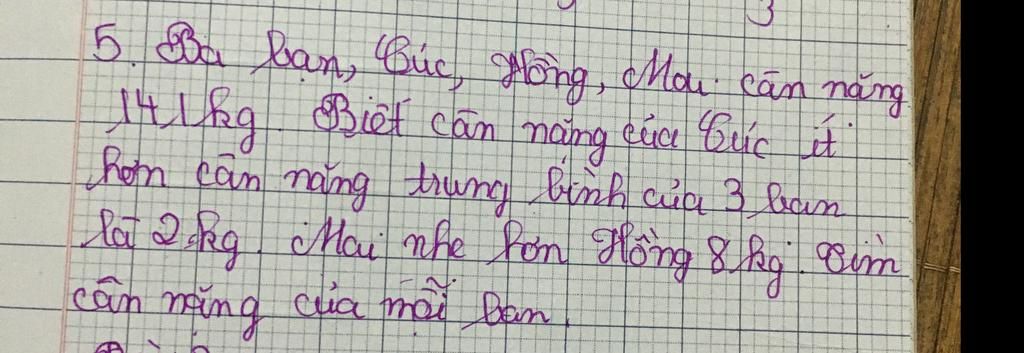 3
5. Ba bạn, Cúc, Hồng, Mai cân nặng
141kg. Biết cân nặng của Cúc ít
hơn cân nặng trung bình của 3 bạn
là 2kg. Mai nhẹ hơn Hồng 8kg. Tìm
cân nặng của mỗi bạn.